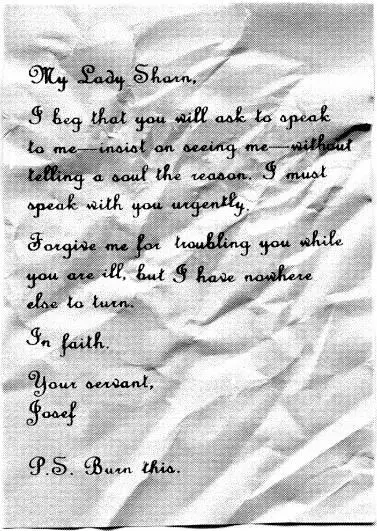 My Lady Sharn,
I beg that you will ask to speak
to me—insist on seeing me—without
telling a soul the reason. I must
speak with you urgently.
Forgive me for troubling you while
you are ill, but I have nowhere
else to turn.
In faith.
Your servant,
Josef
P.S. Burn this.